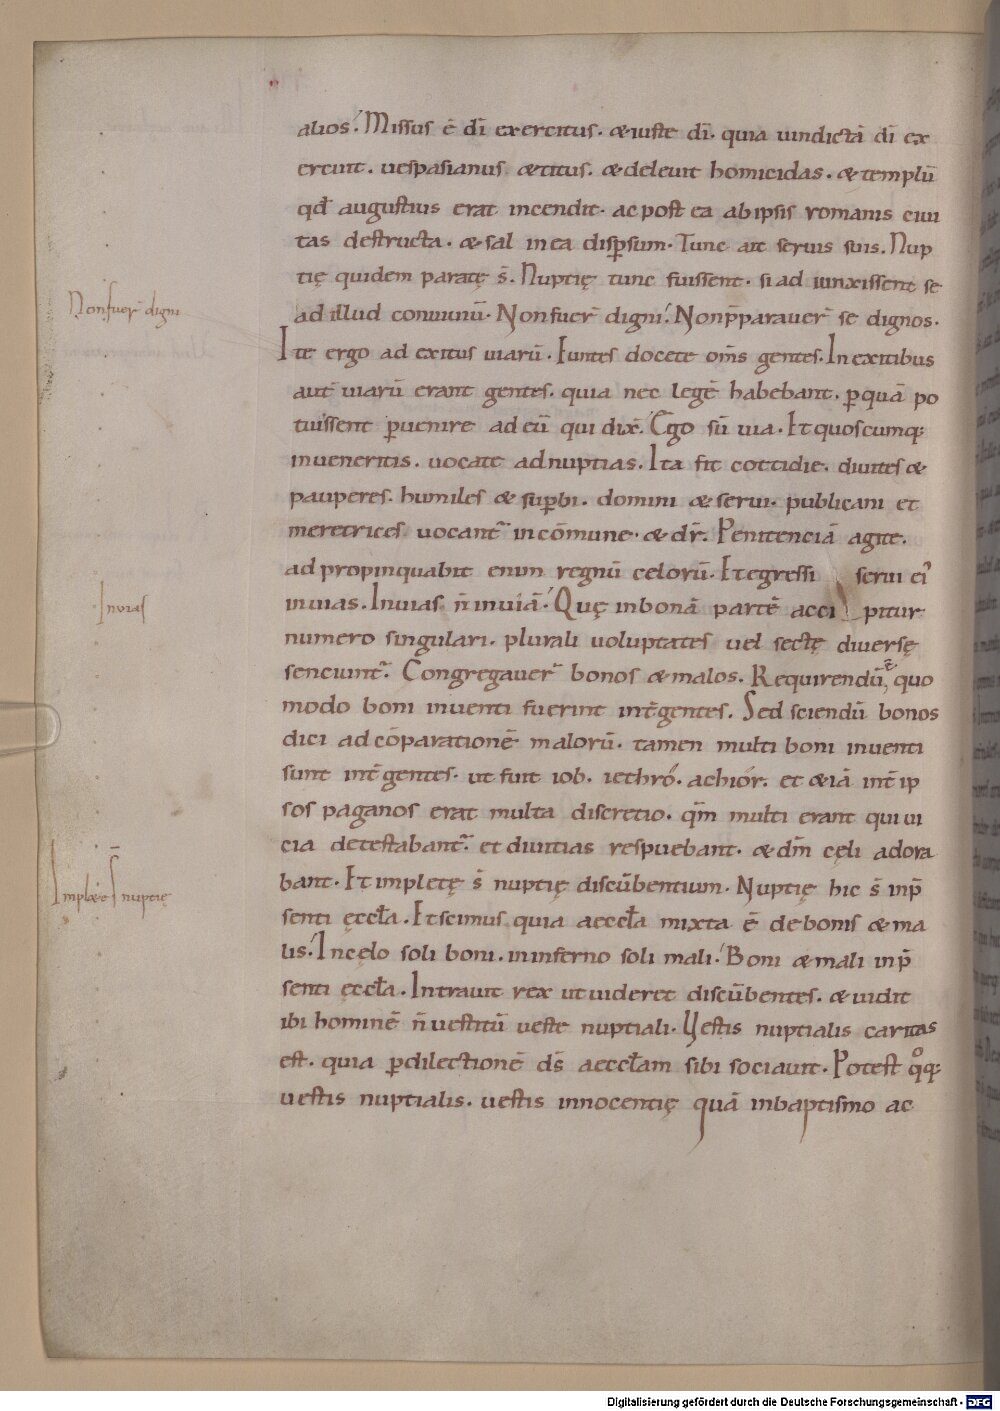 alios. Missus ē dī exercitus. & iuste dī. quia uindictā dī ex
ercuit. uespasianus & titus. & deleuit homicidas. & templū
qd̄ augustius erat incendit. ac post ea ab ipsis romanis ciui
tas destructa. & sal in ea disp̄sum. Tunc ait seruis suis. Nup
tię quidem paratę s̄. Nuptię tunc fuissent. si ad iunxissent se
ad illud conuiuiū. Non fuer̄ digni. Non p̄parauer̄ se dignos.
Non fuer̄ digni
Ite ergo ad exitus uiarū. Euntes docete om̄s gentes. In exitibus
aut̄ uiarū erant gentes. quia nec legē habebant. p̱ quā po
tuissent p̱uenire ad eū qui dix̄. Ego sū uia. Et quoscumq;
inueneritis. uocate ad nuptias. Ita fit cottidie. diuites &
pauperes. humiles & sup̱bi. domini & serui. publicani et
meretrices uocant̄ in cōmune. & dr̄. Penitenciā agite.
ad propinquabit enim regnū celorū. Et egressi serui ei᾽
in uias. In uias. n̄ in uiā. Quę in bonā partē acci pitur
Inuias
numero singulari. plurali uoluptates uel sectę diuersę
senciunt̄. Congregauer̄ bonos & malos. Requirendū ē quo
modo boni inuenti fuerint int̄ gentes. Sed sciendū bonos
dici ad cōparationē malorū. tamen multi boni inuenti
sunt int̄ gentes. ut fuit iob. iethro. achior. et &iā int̄ ip
sos paganos erat multa discretio. qm̄ multi erant qui ui
cia detestabant̄. et diuitias respuebant. & dm̄ cęli adora
bant. Et impletę s̄ nuptię discūbentium. Nuptię hic s̄ in p̄
Impl&ę s̄ nuptię
senti ęccła. Et scimus quia aeccła mixta ē de bonis & ma
lis. In cęlo soli boni. in inferno soli mali. Boni & mali in p̄
senti ęccła. Intrauit rex ut uideret discūbentes. & uidit
ibi hominē n̄ uestitū ueste nuptiali. Vestis nuptialis caritas
est. quia p̱ dilectionē ds̄ aeccłam sibi sociauit. Potest qͦq;
uestis nuptialis. uestis innocentię quā in baptismo ac
Digitalisierung gefördert durch die Deutsche Forschungsgemeinschaft - DFG